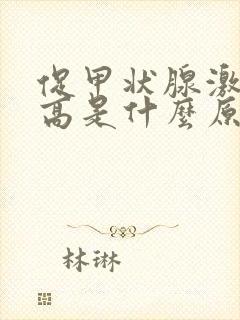 促甲状腺激
高是什麼原
林琳